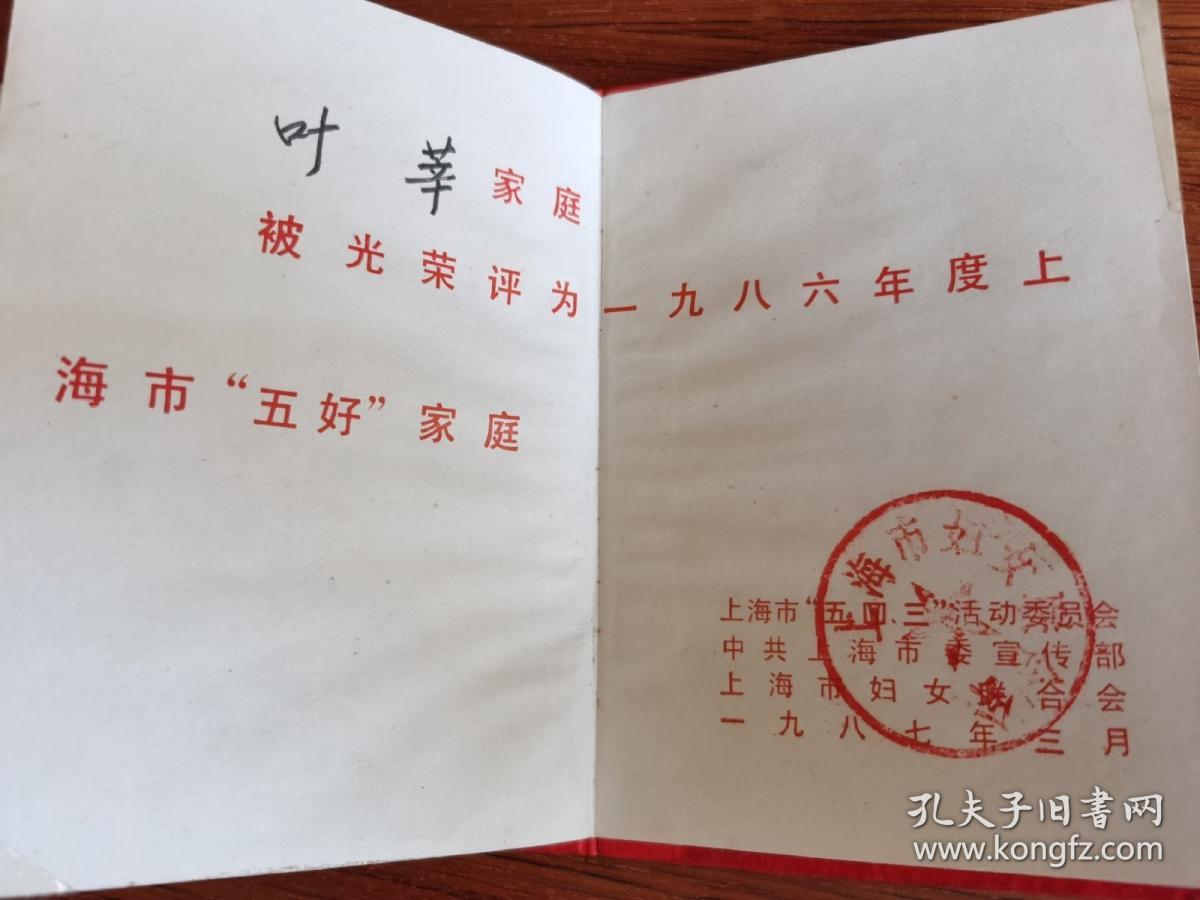 叶莘家庭
被光荣评为一九八六年度上
海市“五好”家庭
上海市妇女
上海市“五四三”活动委员会
中共上海市委宣传部
上海市妇女联合会
一九八七年三月
孔夫子旧书网
www.kongfz.com